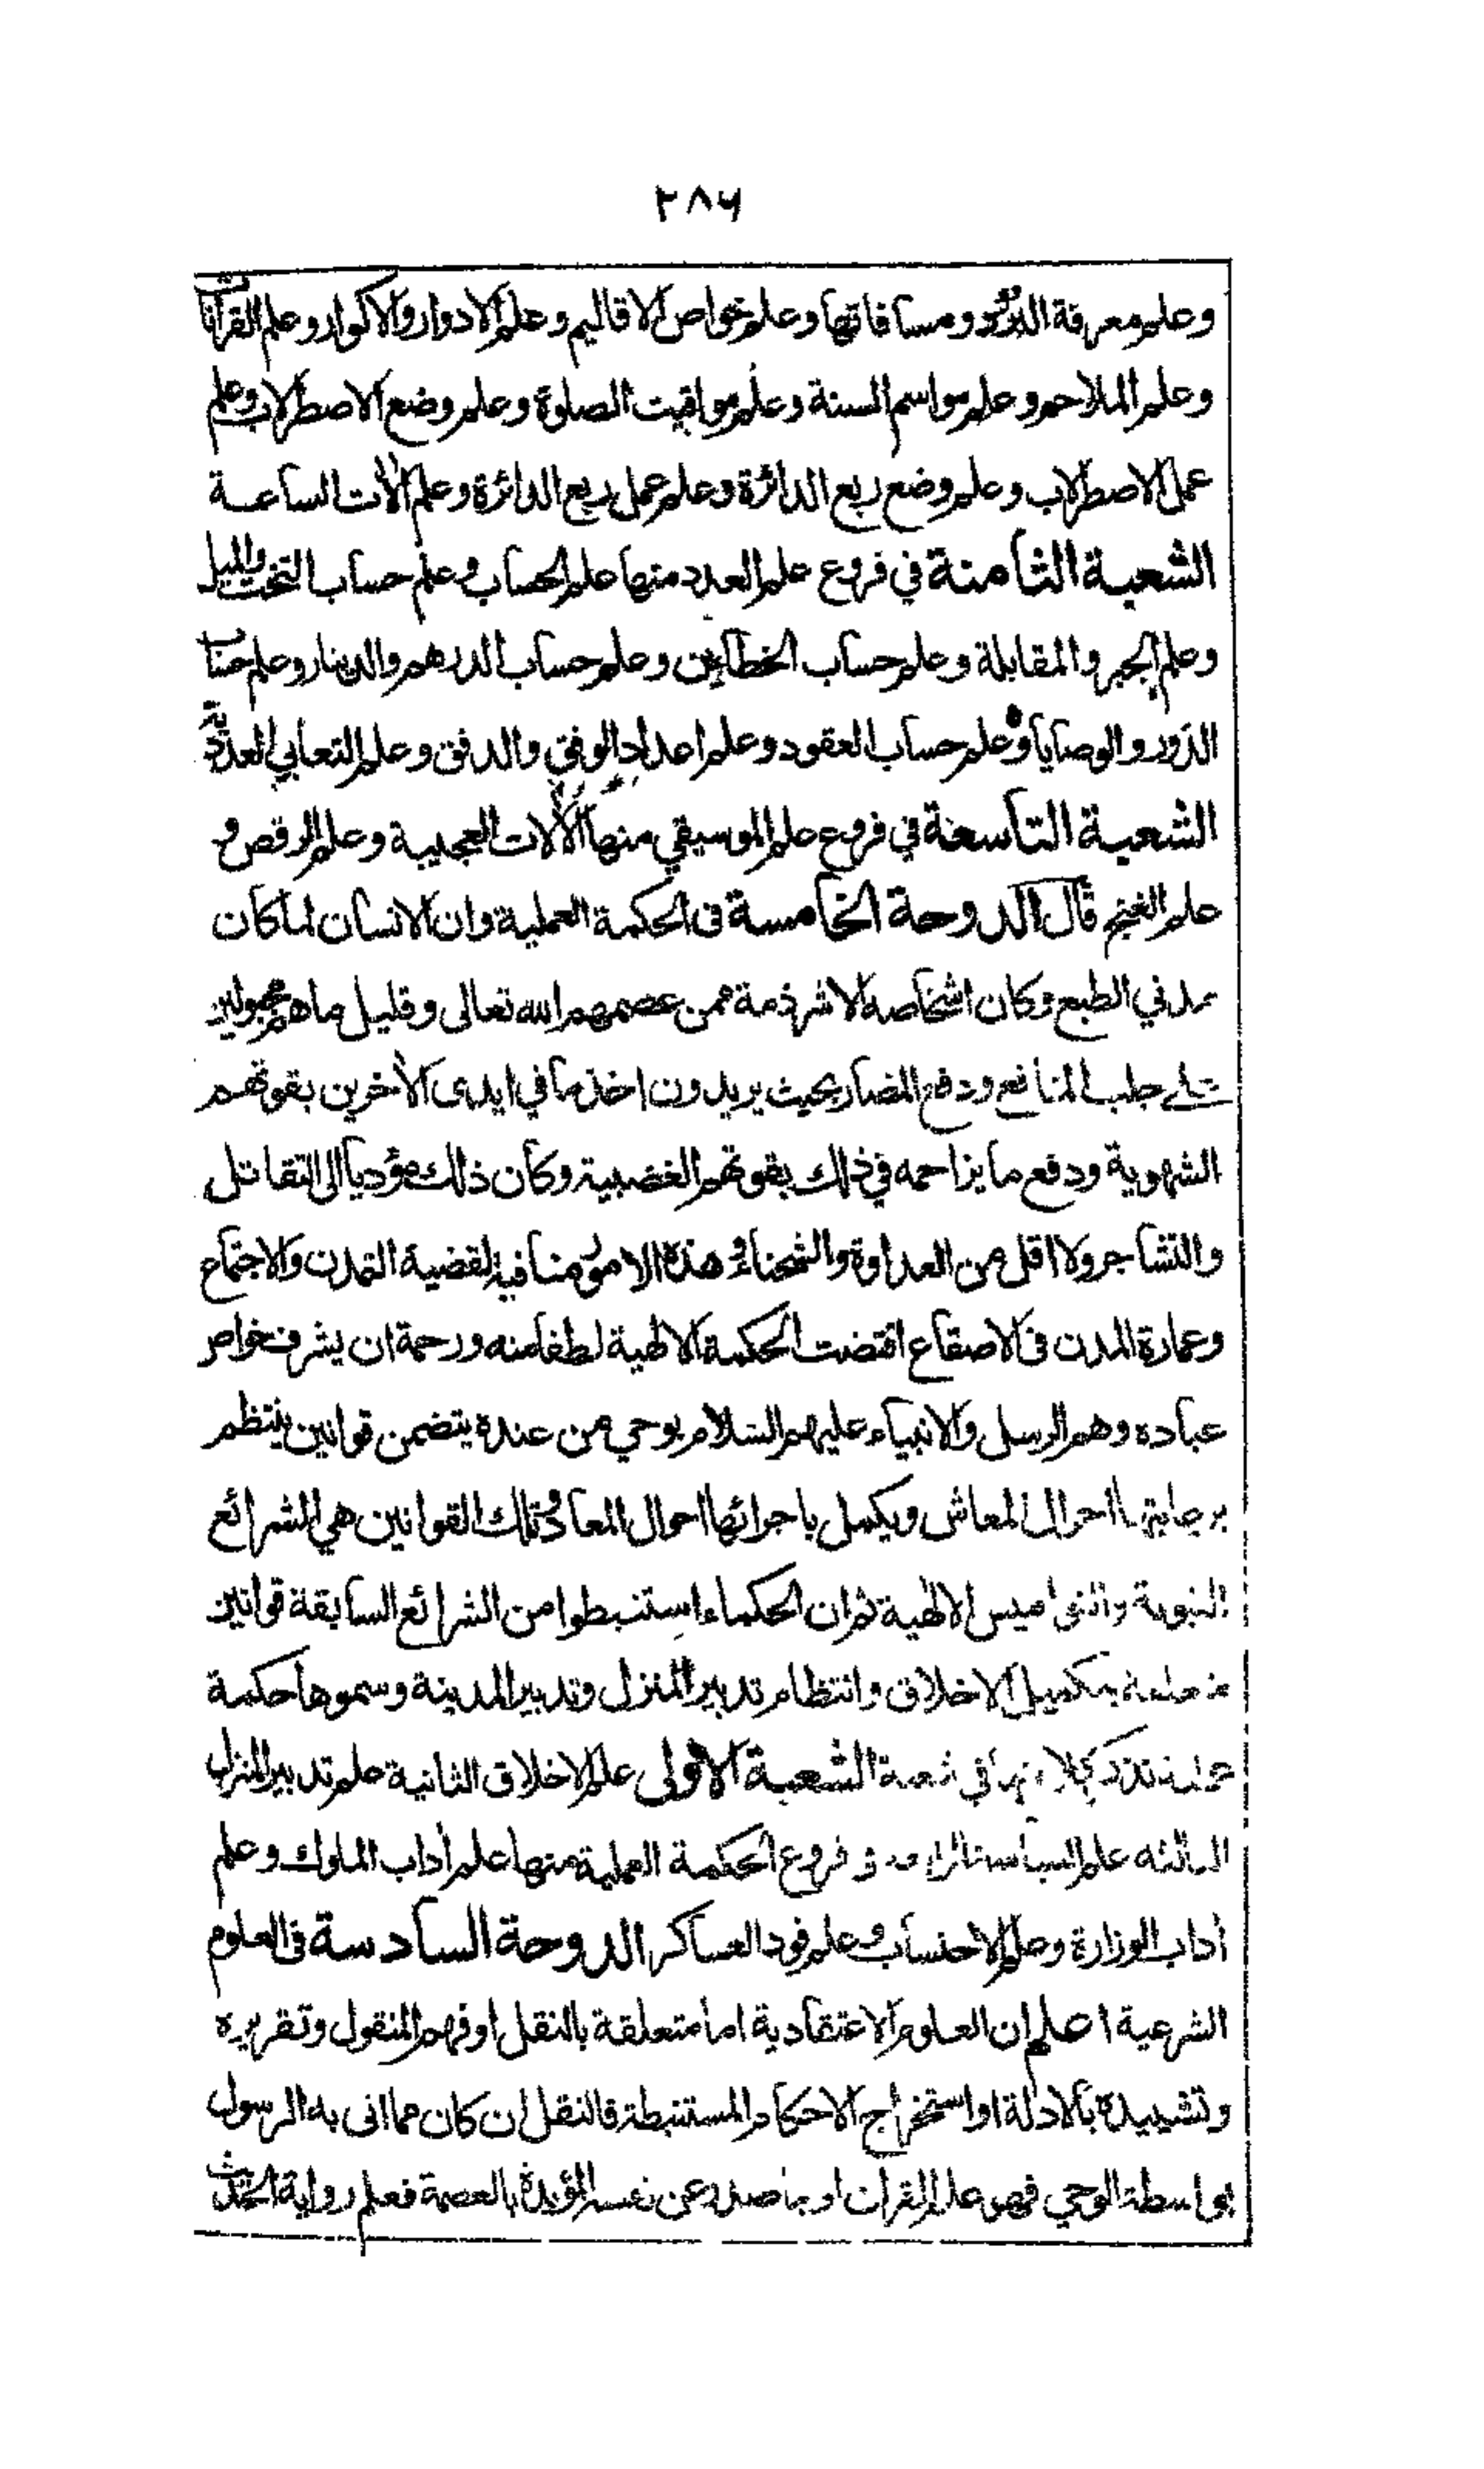 ۲۸۶
وعلم معرفة البرد ومسافاتها وعلم خواص الاقاليم وعلم الادوار والاكوار وعلم القرانات
وعلم الملاحم وعلم مواسم السنة وعلم مواقيت الصلوة وعلم وضع الاصطرلاب وعلم
عمل الاصطرلاب وعلم وضع ربع الدائرة وعلم عمل ربع الدائرة وعلم آلات الساعة
الشعبة الثامنة في فروع علم العدد منها علم الحساب وعلم حساب التخت والميل
وعلم الجبر والمقابلة وعلم حساب الخطاين وعلم حساب الدرهم والدينار وعلم حساب
الدور والوصايا وعلم حساب العقود وعلم اعداد الوفق والدفق وعلم التعابي العددية
الشعبة التاسعة في فروع علم الموسيقي منها الآلات العجيبة وعلم الرقص و
علم الغنج قال الدوحة الخامسة في الحكمة العملية وان الانسان لما كان
مدني الطبع وكان اشخاصه الا شرذمة ممن عصمهم الله تعالى وقليل ما هم مجبولين
على جلب المنافع ودفع المضار بحيث يريدون اخذ ما في ايدى الآخرين بقوتهم
الشهوية ودفع ما يزاحمه في ذلك بقوتهم الغضبية وكان ذلك مؤديا الى التقاتل
والتشاجر ولا اقل من العداوة والشحناء وهذه الامور منافية لقضية التمدن والاجتماع
وعمارة المدن فى الاصقاع اقتضت الحكمة الالهية لطفا منه ورحمة ان يشرف خواص
عباده وهم الرسل والانبياء عليهم السلام بوحي من عنده يتضمن قوانين ينتظم
برعايتها احوال المعاش ويكمل باجرائها احوال المعاد وتلك القوانين هي الشرائع
النبوية والنواميس الالهية ثم ان الحكماء استنبطوا من الشرائع السابقة قوانين
متعلقة بتكميل الاخلاق وانتظام تدبير المنزل وتدبير المدينة وسموها حكمة
عملية نذكر كلا منها في شعبة الشعبة الاولى علم الاخلاق الثانية علم تدبير المنزل
الثالثة علم السياسة الرابعة في فروع الحكمة العملية منها علم آداب الملوك وعلم
آداب الوزارة وعلم الاحتساب وعلم قود العساكر الدوحة السادسة فى العلوم
الشرعية اعلم ان العلوم الاعتقادية اما متعلقة بالنقل او فهم المنقول وتقريره
وتشييده بالادلة او استخراج الاحكام المستنبطة فالنقل ان كان مما اتى به الرسول
بواسطة الوحي فهو علم القرآن او بما صدر عن نفسه المؤيدة بالعصمة فعلم رواية الحديث